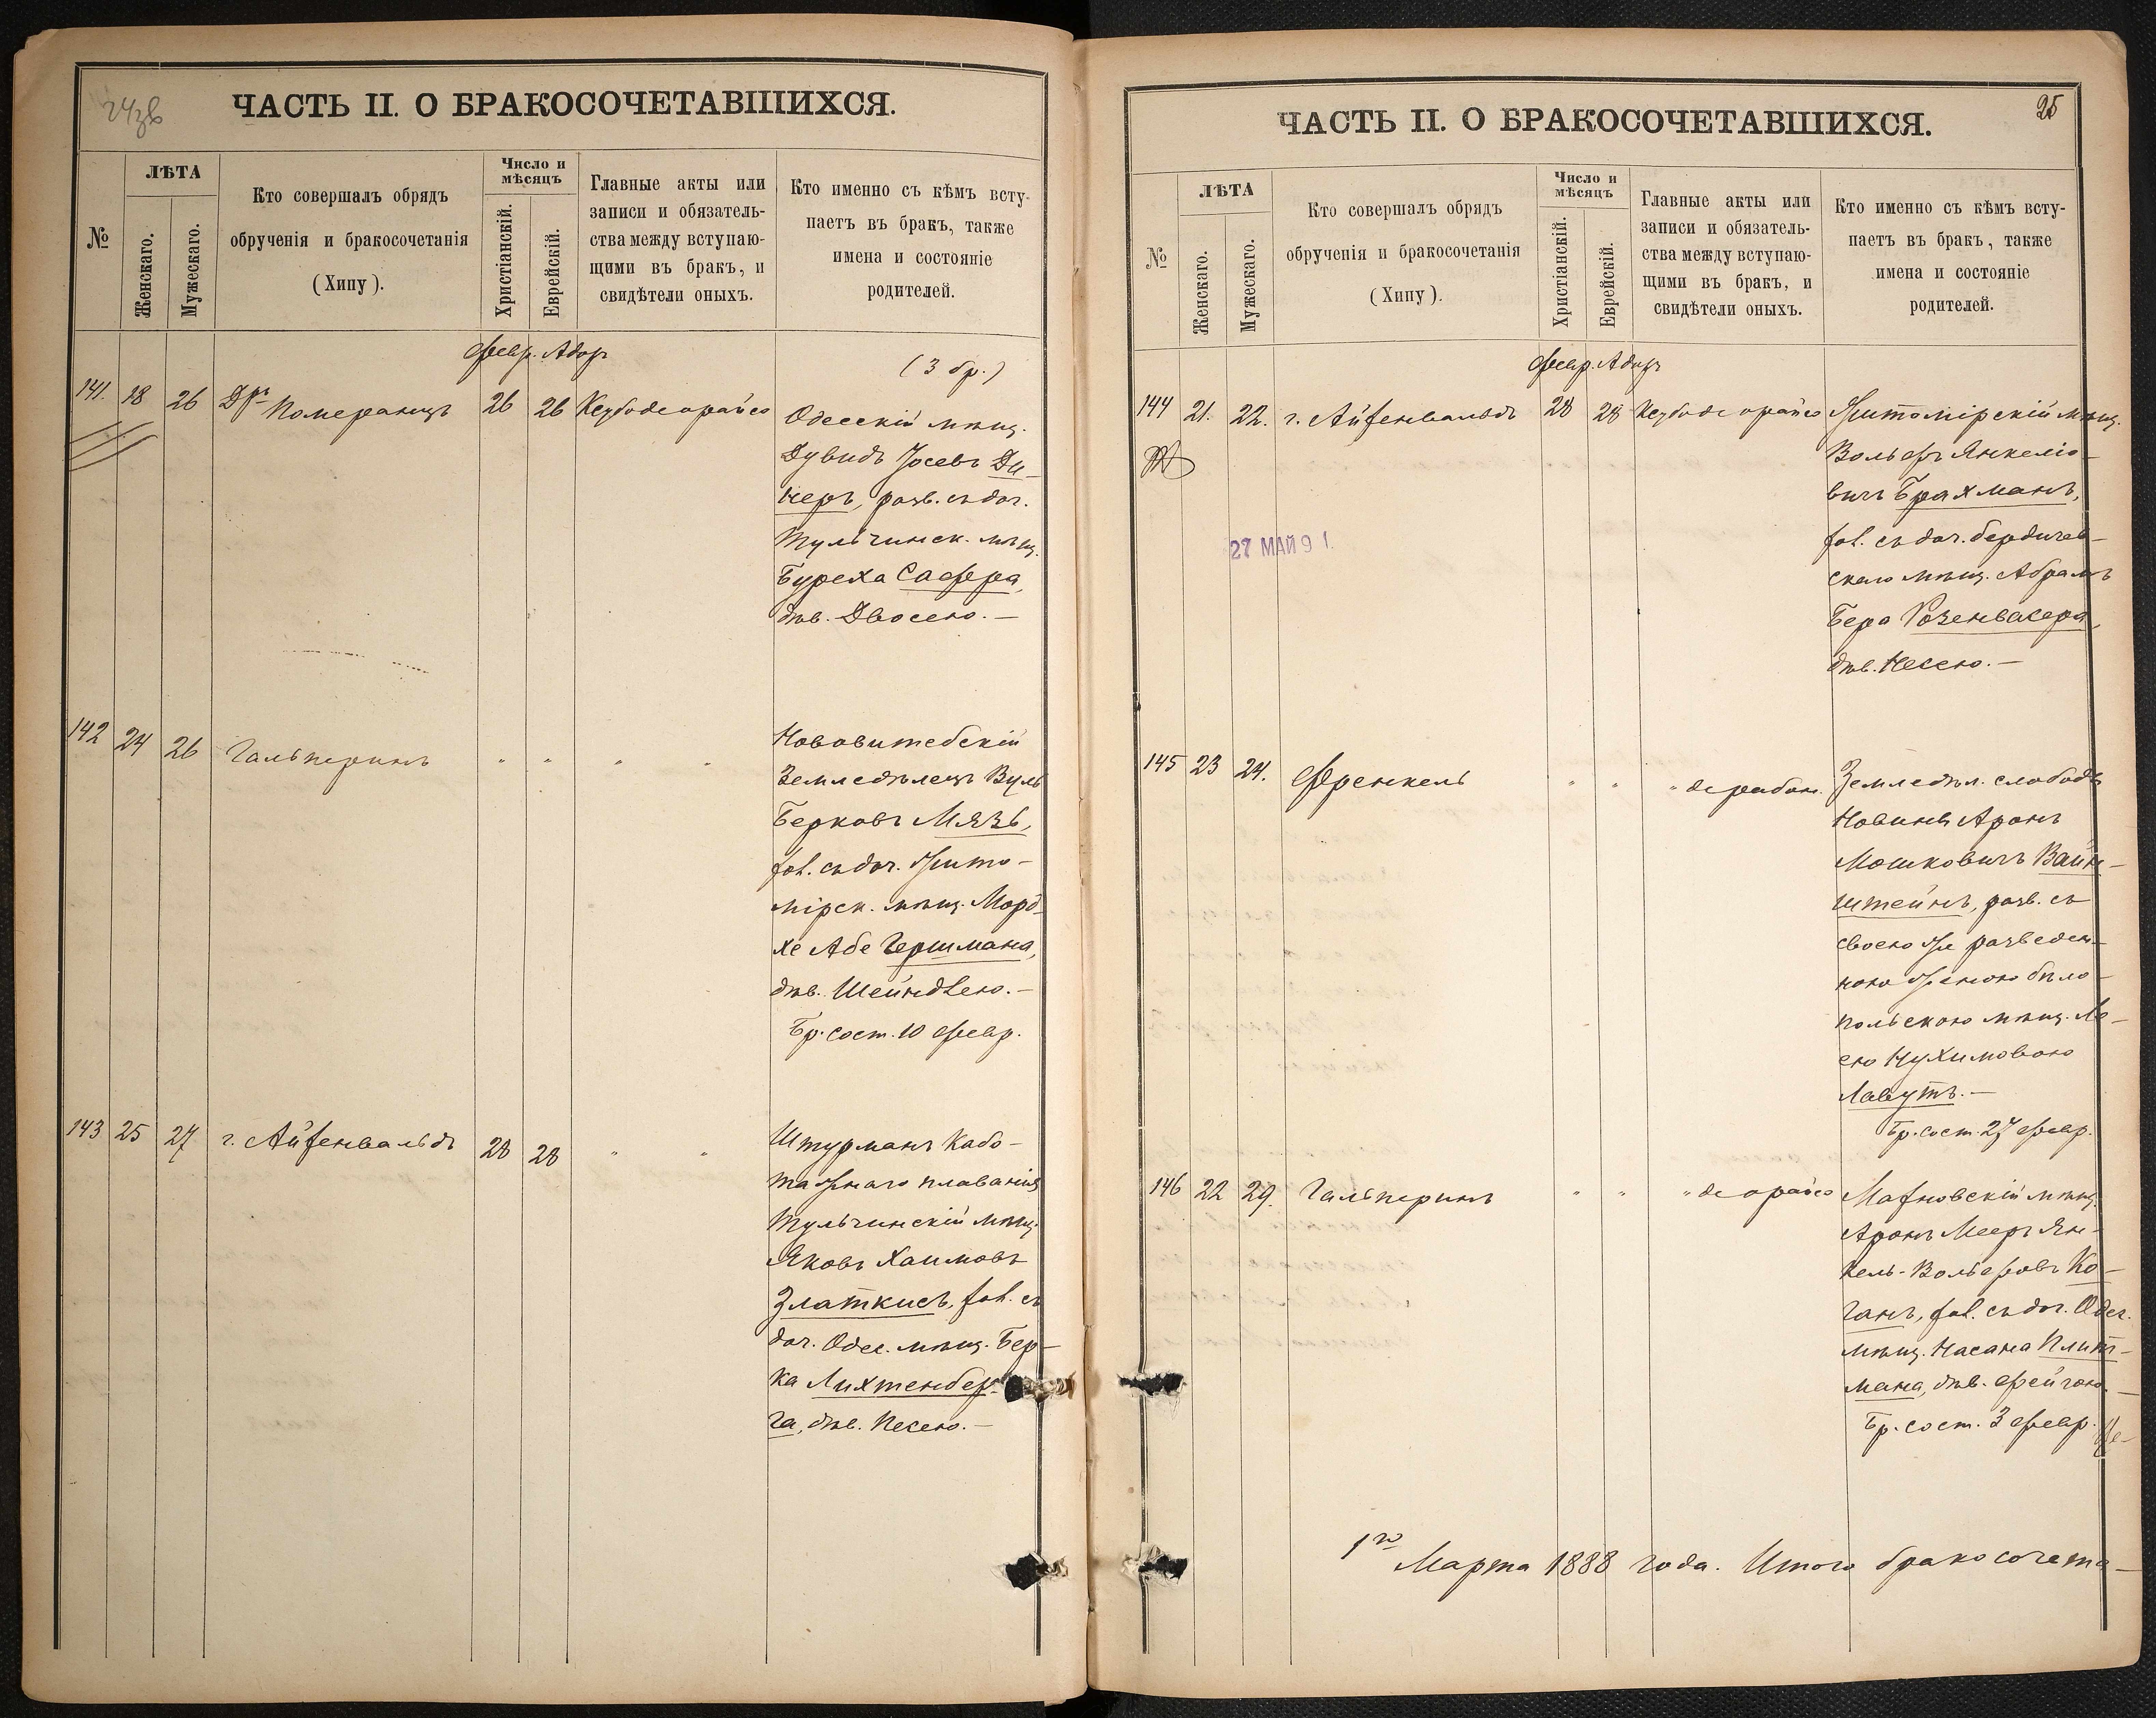 24 зв
ЧАСТЬ II. О БРАКОСОЧЕТАВШИХСЯ.
№
ЛѢТА
Женскаго.
Мужескаго.
Кто совершалъ обрядъ
обрученія и бракосочетанія
(Хипу).
Число и
мѣсяцъ
Христіанскій.
Еврейскій.
Главные акты или
записи и обязатель-
ства между вступаю-
щими въ бракъ, и
свидѣтели оныхъ.
Кто именно съ кѣмъ всту-
паетъ въ бракъ, также
имена и состояніе
родителей.
Февр. Адар
(3 бр.)
141. 18 26 Дръ Померанцъ 26 26 Кезубоде орайсо
Одесскій мѣщ.
Дувидъ Іосевъ Ди-
неръ, разв. съ доч.
Тульчинск. мѣщ.
Буреха Сафера,
дѣв. Двосею. —
142 24 26 Гальперинъ " " " "
Нововитебскій
Земледѣлецъ Вуль
Берковъ Мязь,
хол. съ доч. Жито-
мірск. мѣщ. Морд-
хе Абе Гершмана,
дѣв. Шейндлею. —
Бр. сост. 10 февр.
143 25 27 г. Айзенвальдъ 28 28 " "
Штурманъ Кабо-
тажнаго плаванія
Тульчинскій мѣщ.
Яковъ Хаимовъ
Златкисъ, хол. съ
доч. Одес. мѣщ. Бер-
ка Лихтенбер-
га, дѣв. Песею. —
25
ЧАСТЬ II. О БРАКОСОЧЕТАВШИХСЯ.
№
ЛѢТА
Женскаго.
Мужескаго.
Кто совершалъ обрядъ
обрученія и бракосочетанія
(Хипу).
Число и
мѣсяцъ
Христіанскій.
Еврейскій.
Главные акты или
записи и обязатель-
ства между вступаю-
щими въ бракъ, и
свидѣтели оныхъ.
Кто именно съ кѣмъ всту-
паетъ въ бракъ, также
имена и состояніе
родителей.
Февр. Адар
144 21. 22. г. Айзенвальдъ 28 28 Кезубоде орайсо
Житомірскій мѣщ.
Вольфъ Янкеліо-
вичъ Брахманъ,
хол. съ доч. бердичев-
скаго мѣщ. Абрамъ
Бера Розенвасера,
дѣв. Несею. —
27 МАЙ 9 1.
145 23 24. Френкель " " " де рабон.
Земледѣл. слободы
Новины Аронъ
Мошковичъ Вайн-
штейнъ, разв. съ
своею же разведен-
ною женою бѣло-
польскою мѣщ. Ле-
ею Нухимовою
Лавутъ. —
Бр. сост. 27 февр.
146 22 29. Гальперинъ " " " де орайсо
Махновскій мѣщ.
Аронъ Мееръ Ян-
кель-Вольфовъ Ко-
ганъ, хол. съ доч. Одес.
мѣщ. Насана Плит-
мана, дѣв. Фейгою. —
Бр. сост. 3 февр.
1го Марта 1888 года. Итого бракосочета-